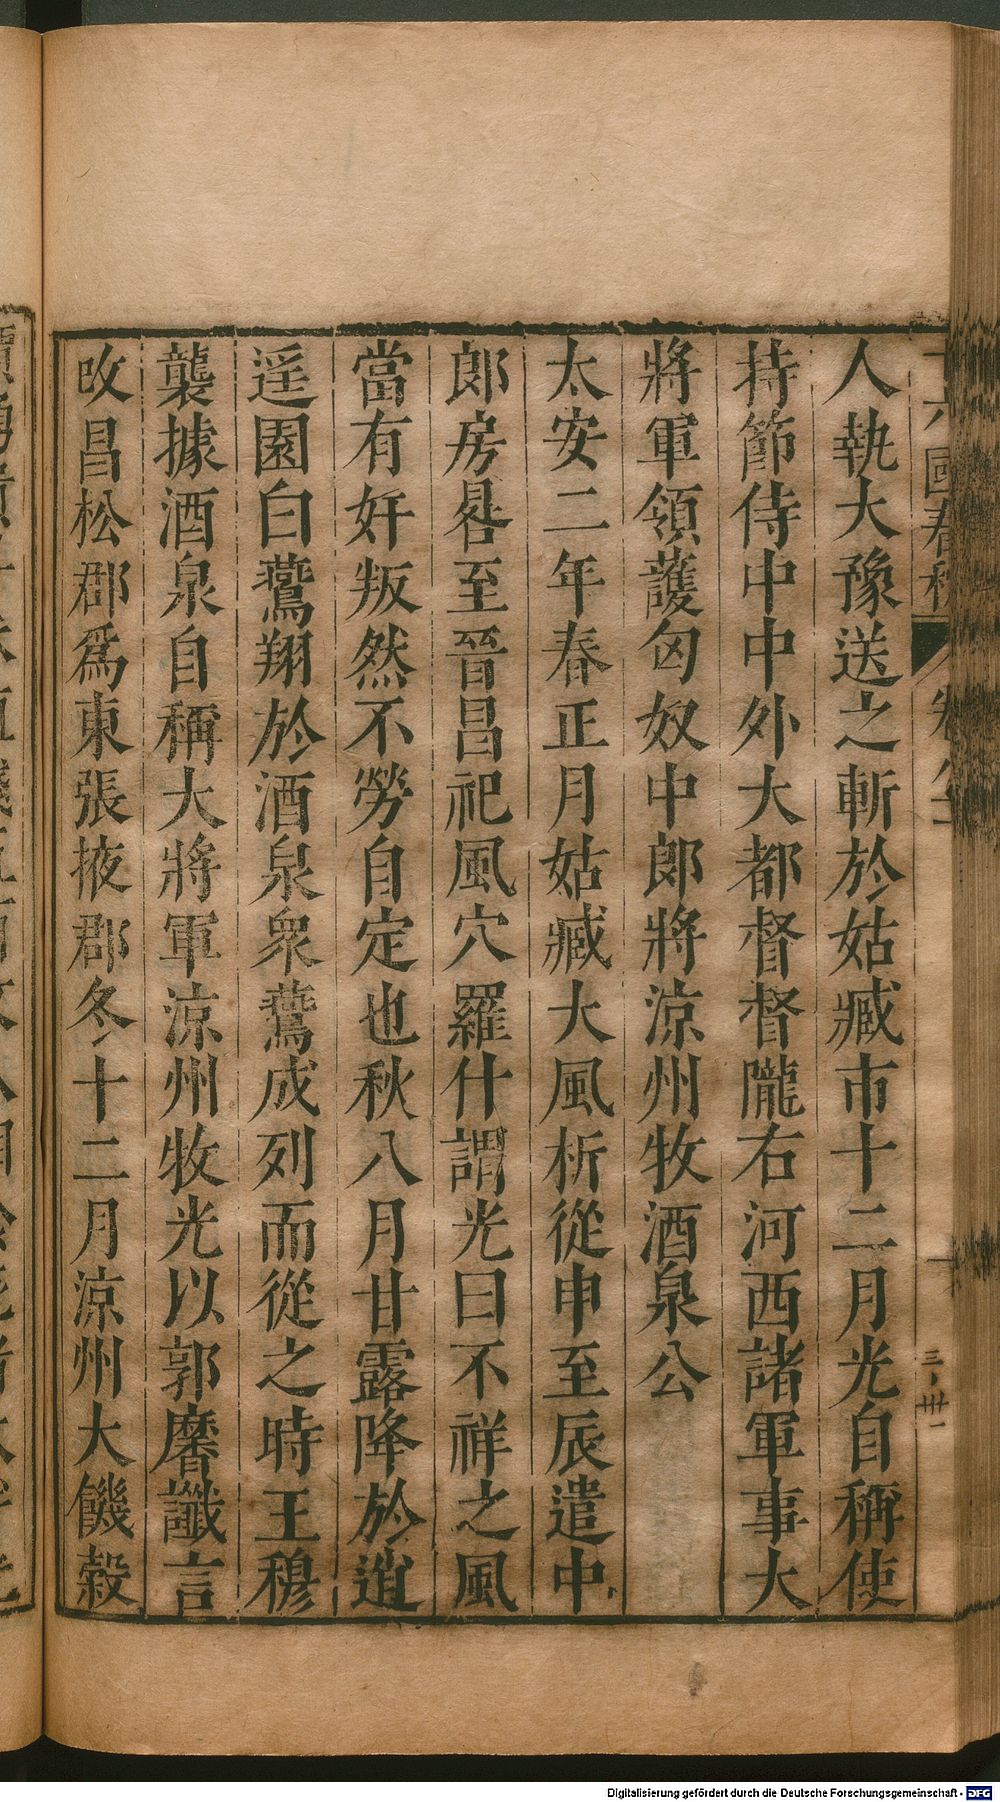 人執大豫送之斬於姑臧市十二月光自稱使
持節侍中中外大都督督隴右河西諸軍事大
將軍領護匈奴中郎將涼州牧酒泉公
太安二年春正月姑臧大風析從申至辰遣中
郎房晷至晉昌祀風穴羅什謂光曰不祥之風
當有奸叛然不勞自定也秋八月甘露降於逍
遥園白鷰翔於酒泉衆鷰成列而從之時王穆
襲據酒泉自稱大將軍涼州牧光以郭黁讖言
改昌松郡爲東張掖郡冬十二月涼州大饑穀
國春秋
Digitalisierung gefördert durch die Deutsche Forschungsgemeinschaft - DFG